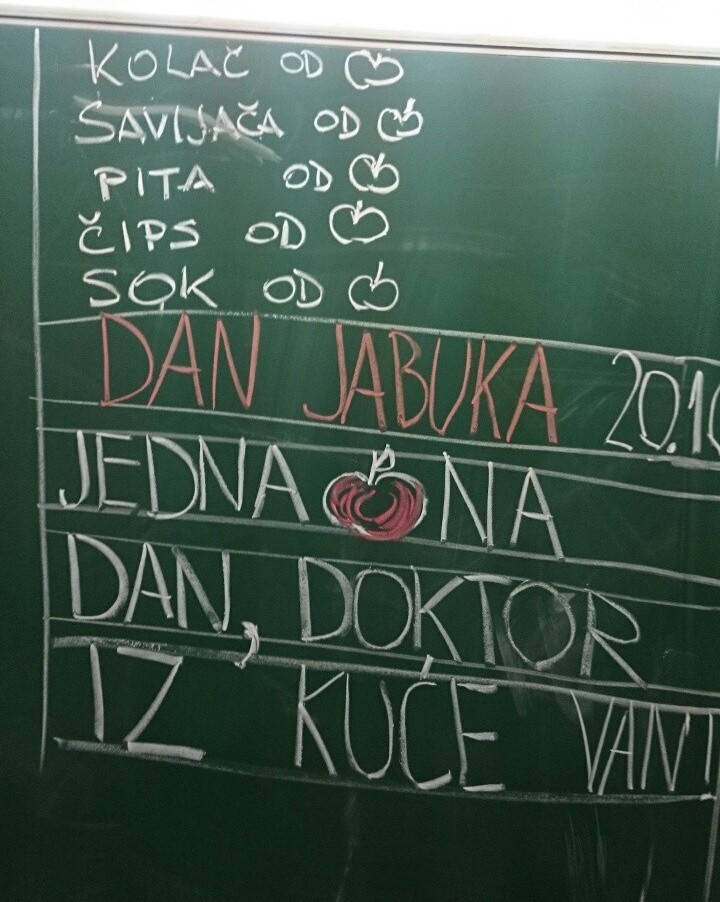 KOLAČ OD
SAVIJAČA OD
PITA OD
ČIPS OD
SOK OD
DAN JABUKA 20.10
JEDNA NA
DAN, DOKTOR
IZ KUĆE VAN